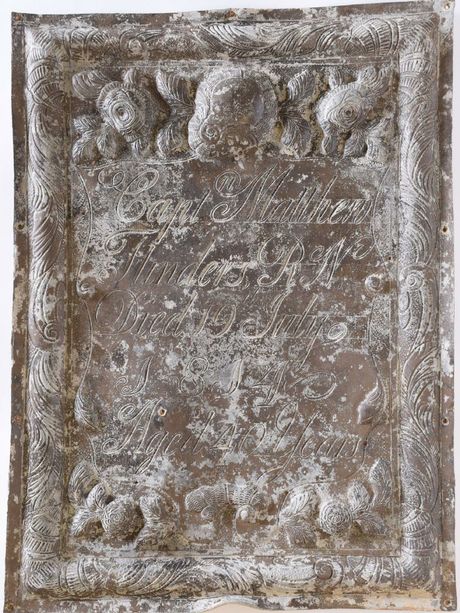 Capt.n Matthew
Flinders R.N.
Died 19 July
1814
Aged 40 Years